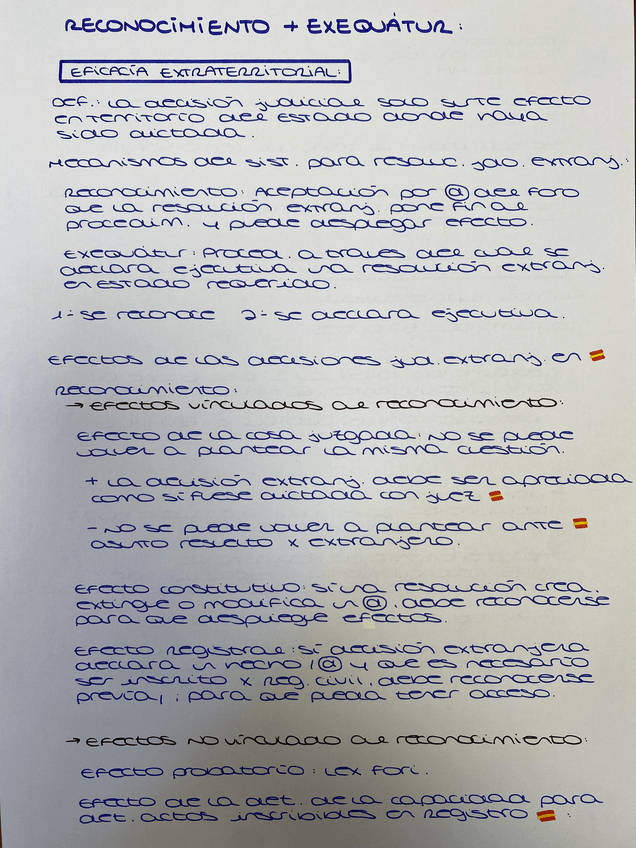 RECONOCIMIENTO + EXEQUÁTUR:
EFICACÍA EXTRATERRITORIAL:
DEF.: La decisión judicial solo surte efecto
en territorio del ESTADO donde haya
sido dictada.
Mecanismos del sist. para resoluc. jdo. extranj.:
Reconocimiento: Aceptación por @ del foro
que la resolución extranj. pone fin al
procedim. y puede desplegar efecto.
EXEQUÁTUR: Proced. a traves del cual se
declara ejecutiva una resolución extranj.
en ESTADO requerido.
1- se reconoce 2- se declara ejecutiva.
EFECTOS DE LAS decisiones jud. extranj. en 🇪🇸
Reconocimiento:
→ EFECTOS vinculados al reconocimiento:
EFECTO de la cosa juzgada: NO se puede
volver a plantear la misma cuestión.
+ La decisión extranj. debe ser apreciada
como si fuese dictada con juez 🇪🇸
- NO se puede volver a plantear ante 🇪🇸
asunto resuelto x extranjero.
EFECTO constitutivo: si una resolución crea,
extingue o modifica un @, debe reconocerse
para que despliegue efectos.
EFECTO Registral: si decisión extranjera
declara un hecho / @ y que es necesario
ser inscrito x Reg. civil, debe reconocerse
previa, para que pueda tener acceso.
→ EFECTOS NO vinculado al reconocimiento:
EFECTO probatorio: Lex fori.
EFECTO de la det. de la capacidad para
det. actos inscribibles en Registro 🇪🇸: